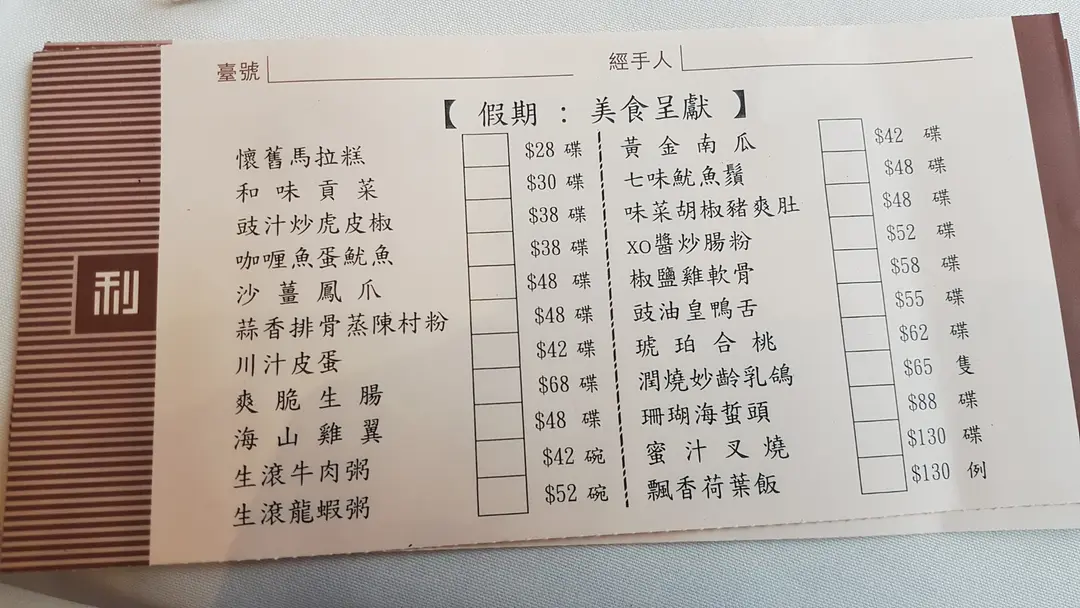 利
臺號 經手人
【 假期 : 美食呈獻 】
懷舊馬拉糕 $28 碟
和味貢菜 $30 碟
豉汁炒虎皮椒 $38 碟
咖喱魚蛋魷魚 $38 碟
沙薑鳳爪 $48 碟
蒜香排骨蒸陳村粉 $48 碟
川汁皮蛋 $42 碟
爽脆生腸 $68 碟
海山雞翼 $48 碟
生滾牛肉粥 $42 碗
生滾龍蝦粥 $52 碗
黃金南瓜 $42 碟
七味魷魚鬚 $48 碟
味菜胡椒豬爽肚 $48 碟
XO醬炒腸粉 $52 碟
椒鹽雞軟骨 $58 碟
豉油皇鴨舌 $55 碟
琥珀合桃 $62 碟
潤燒妙齡乳鴿 $65 隻
珊瑚海蜇頭 $88 碟
蜜汁叉燒 $130 碟
飄香荷葉飯 $130 例